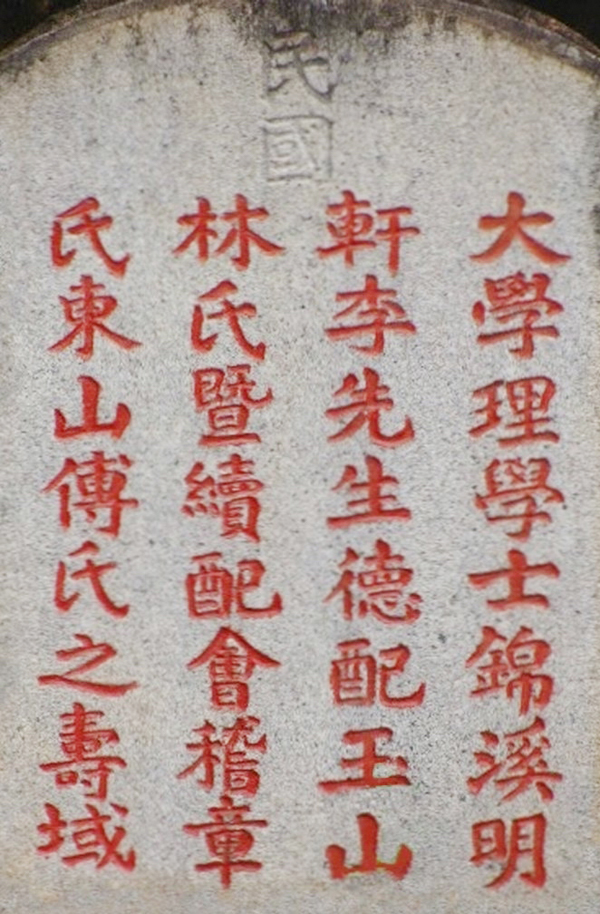 民國
大學理學士錦溪明
軒李先生德配玉山
林氏暨續配會稽章
氏東山傅氏之壽域